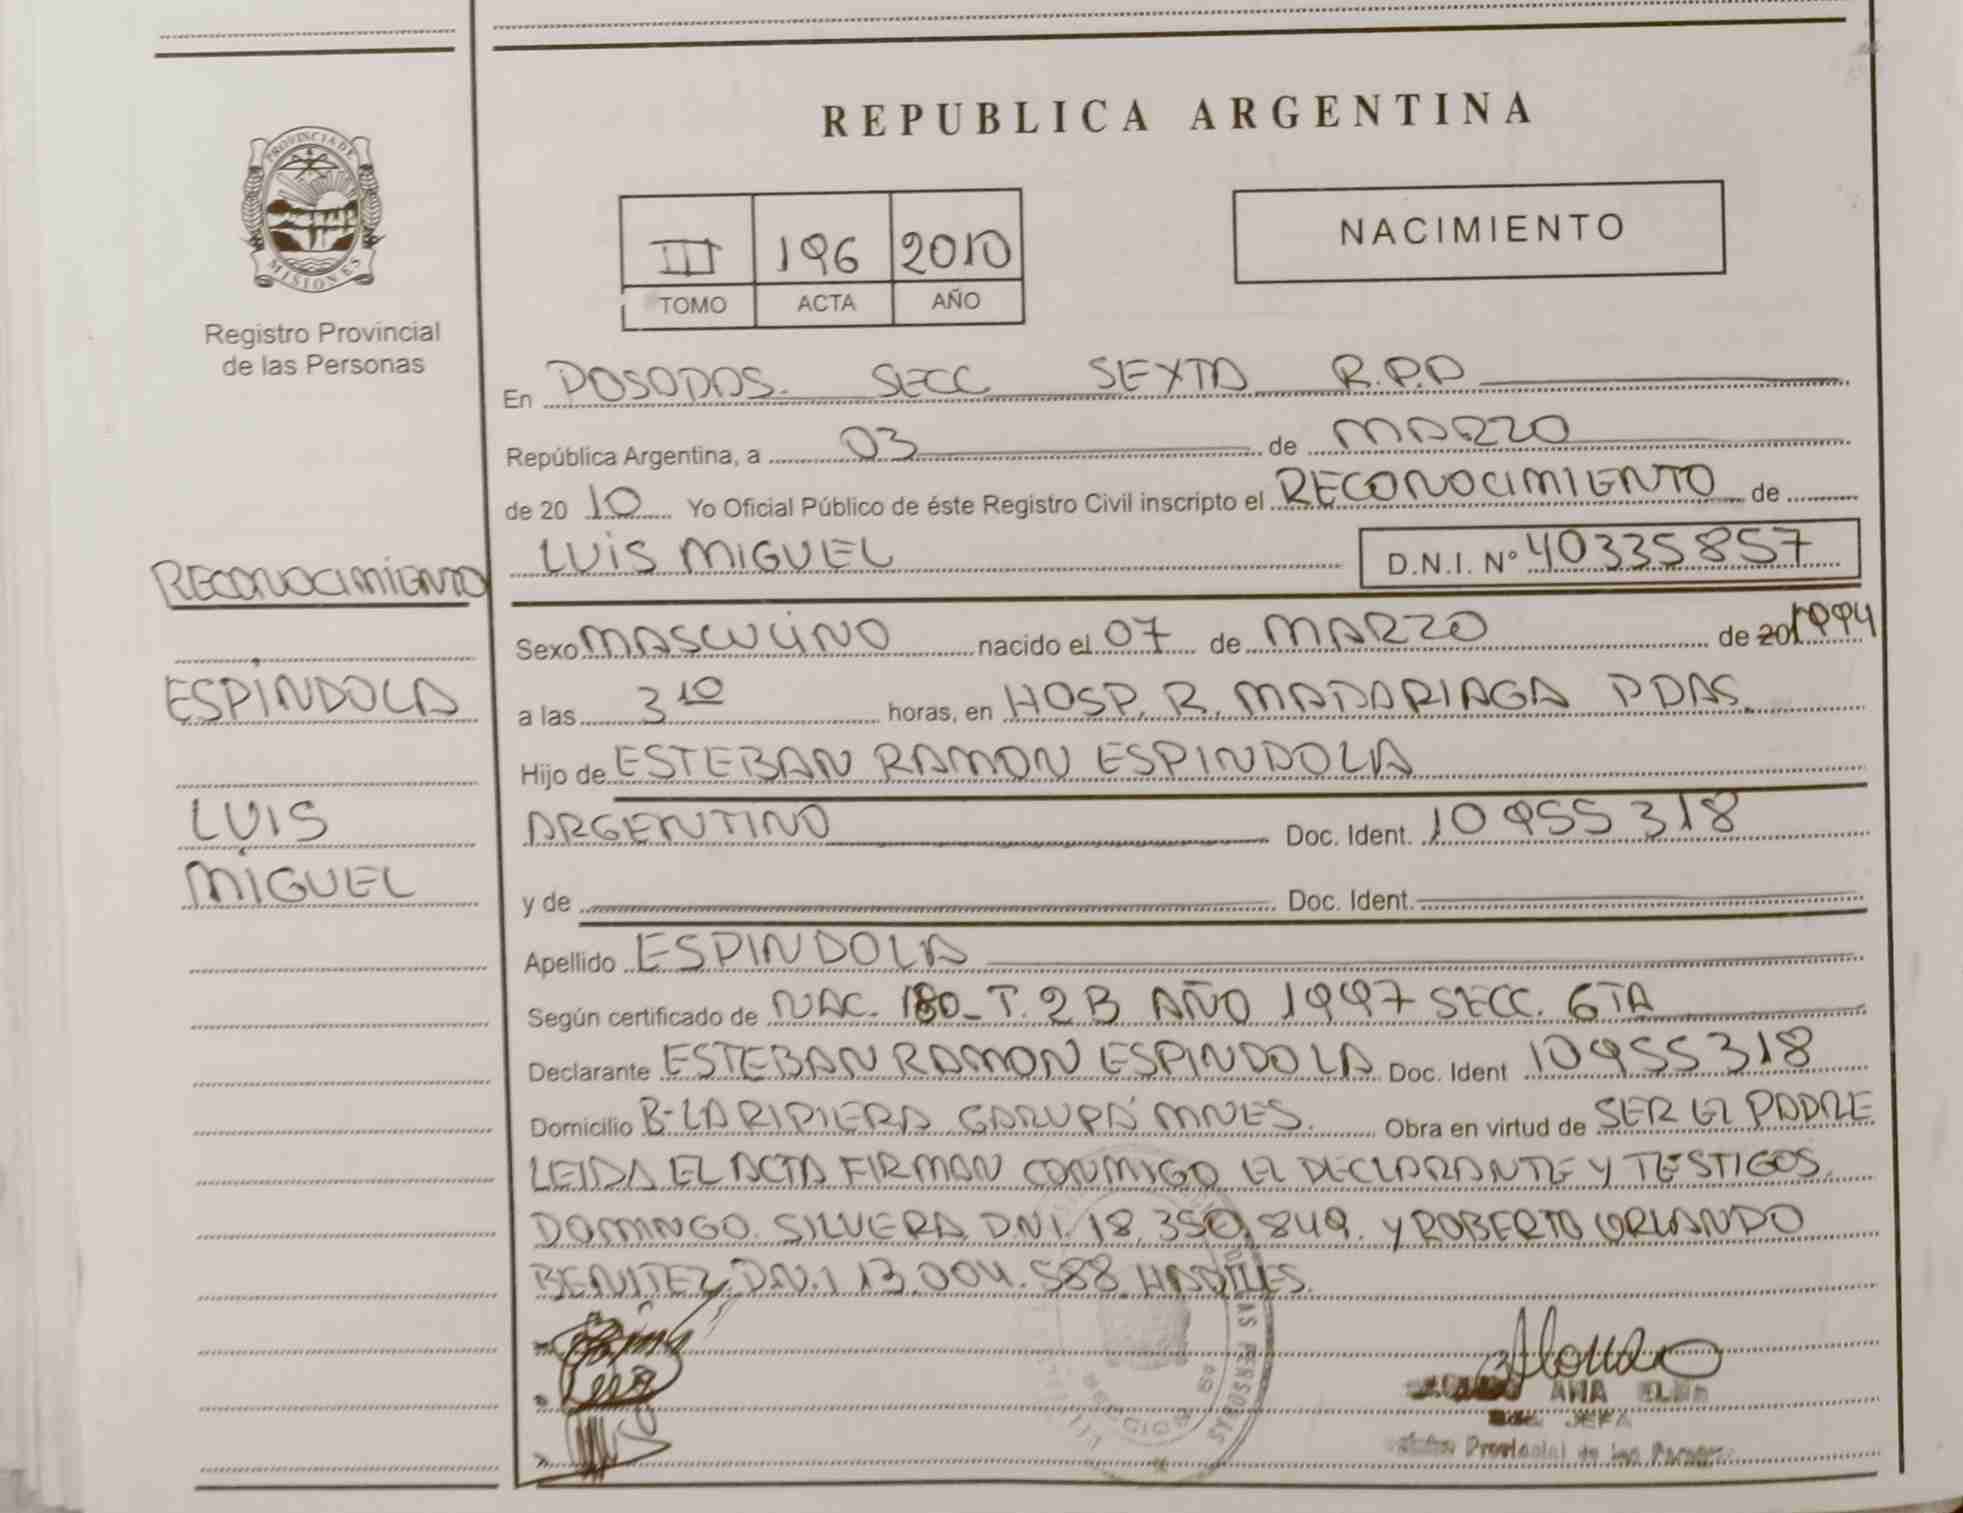 REPUBLICA ARGENTINA
PROVINCIA DE
MISIONES
Registro Provincial
de las Personas
III 196 2010
TOMO ACTA AÑO
NACIMIENTO
En POSADAS. SECC SEXTA R.P.P
República Argentina, a 03 de MARZO
de 20 10 Yo Oficial Público de éste Registro Civil inscripto el RECONOCIMIENTO de
LUIS MIGUEL D.N.I. Nº 40335857
RECONOCIMIENTO
ESPINDOLA
LUIS
MIGUEL
Sexo MASCULINO nacido el 07 de MARZO de 20 1994
a las 3 10 horas, en HOSP. R. MADARIAGA PDAS.
Hijo de ESTEBAN RAMON ESPINDOLA
ARGENTINO Doc. Ident. 10955318
y de Doc. Ident.
Apellido ESPINDOLA
Según certificado de NAC. 180_ T. 2 B AÑO 1997 SECC. 6TA
Declarante ESTEBAN RAMON ESPINDOLA Doc. Ident 10955318
Domicilio B-LA RIPIERA GARUPÁ MNES. Obra en virtud de SER EL PADRE
LEIDA EL ACTA FIRMAN CONMIGO EL DECLARANTE Y TESTIGOS
DOMINGO. SILVERA D.N.I. 18.350.849. Y ROBERTO ORLANDO
BENITEZ D.N.I 13.004.588 HABILES.
AS PERSONAS
ANA
JEFA
Provincial de las